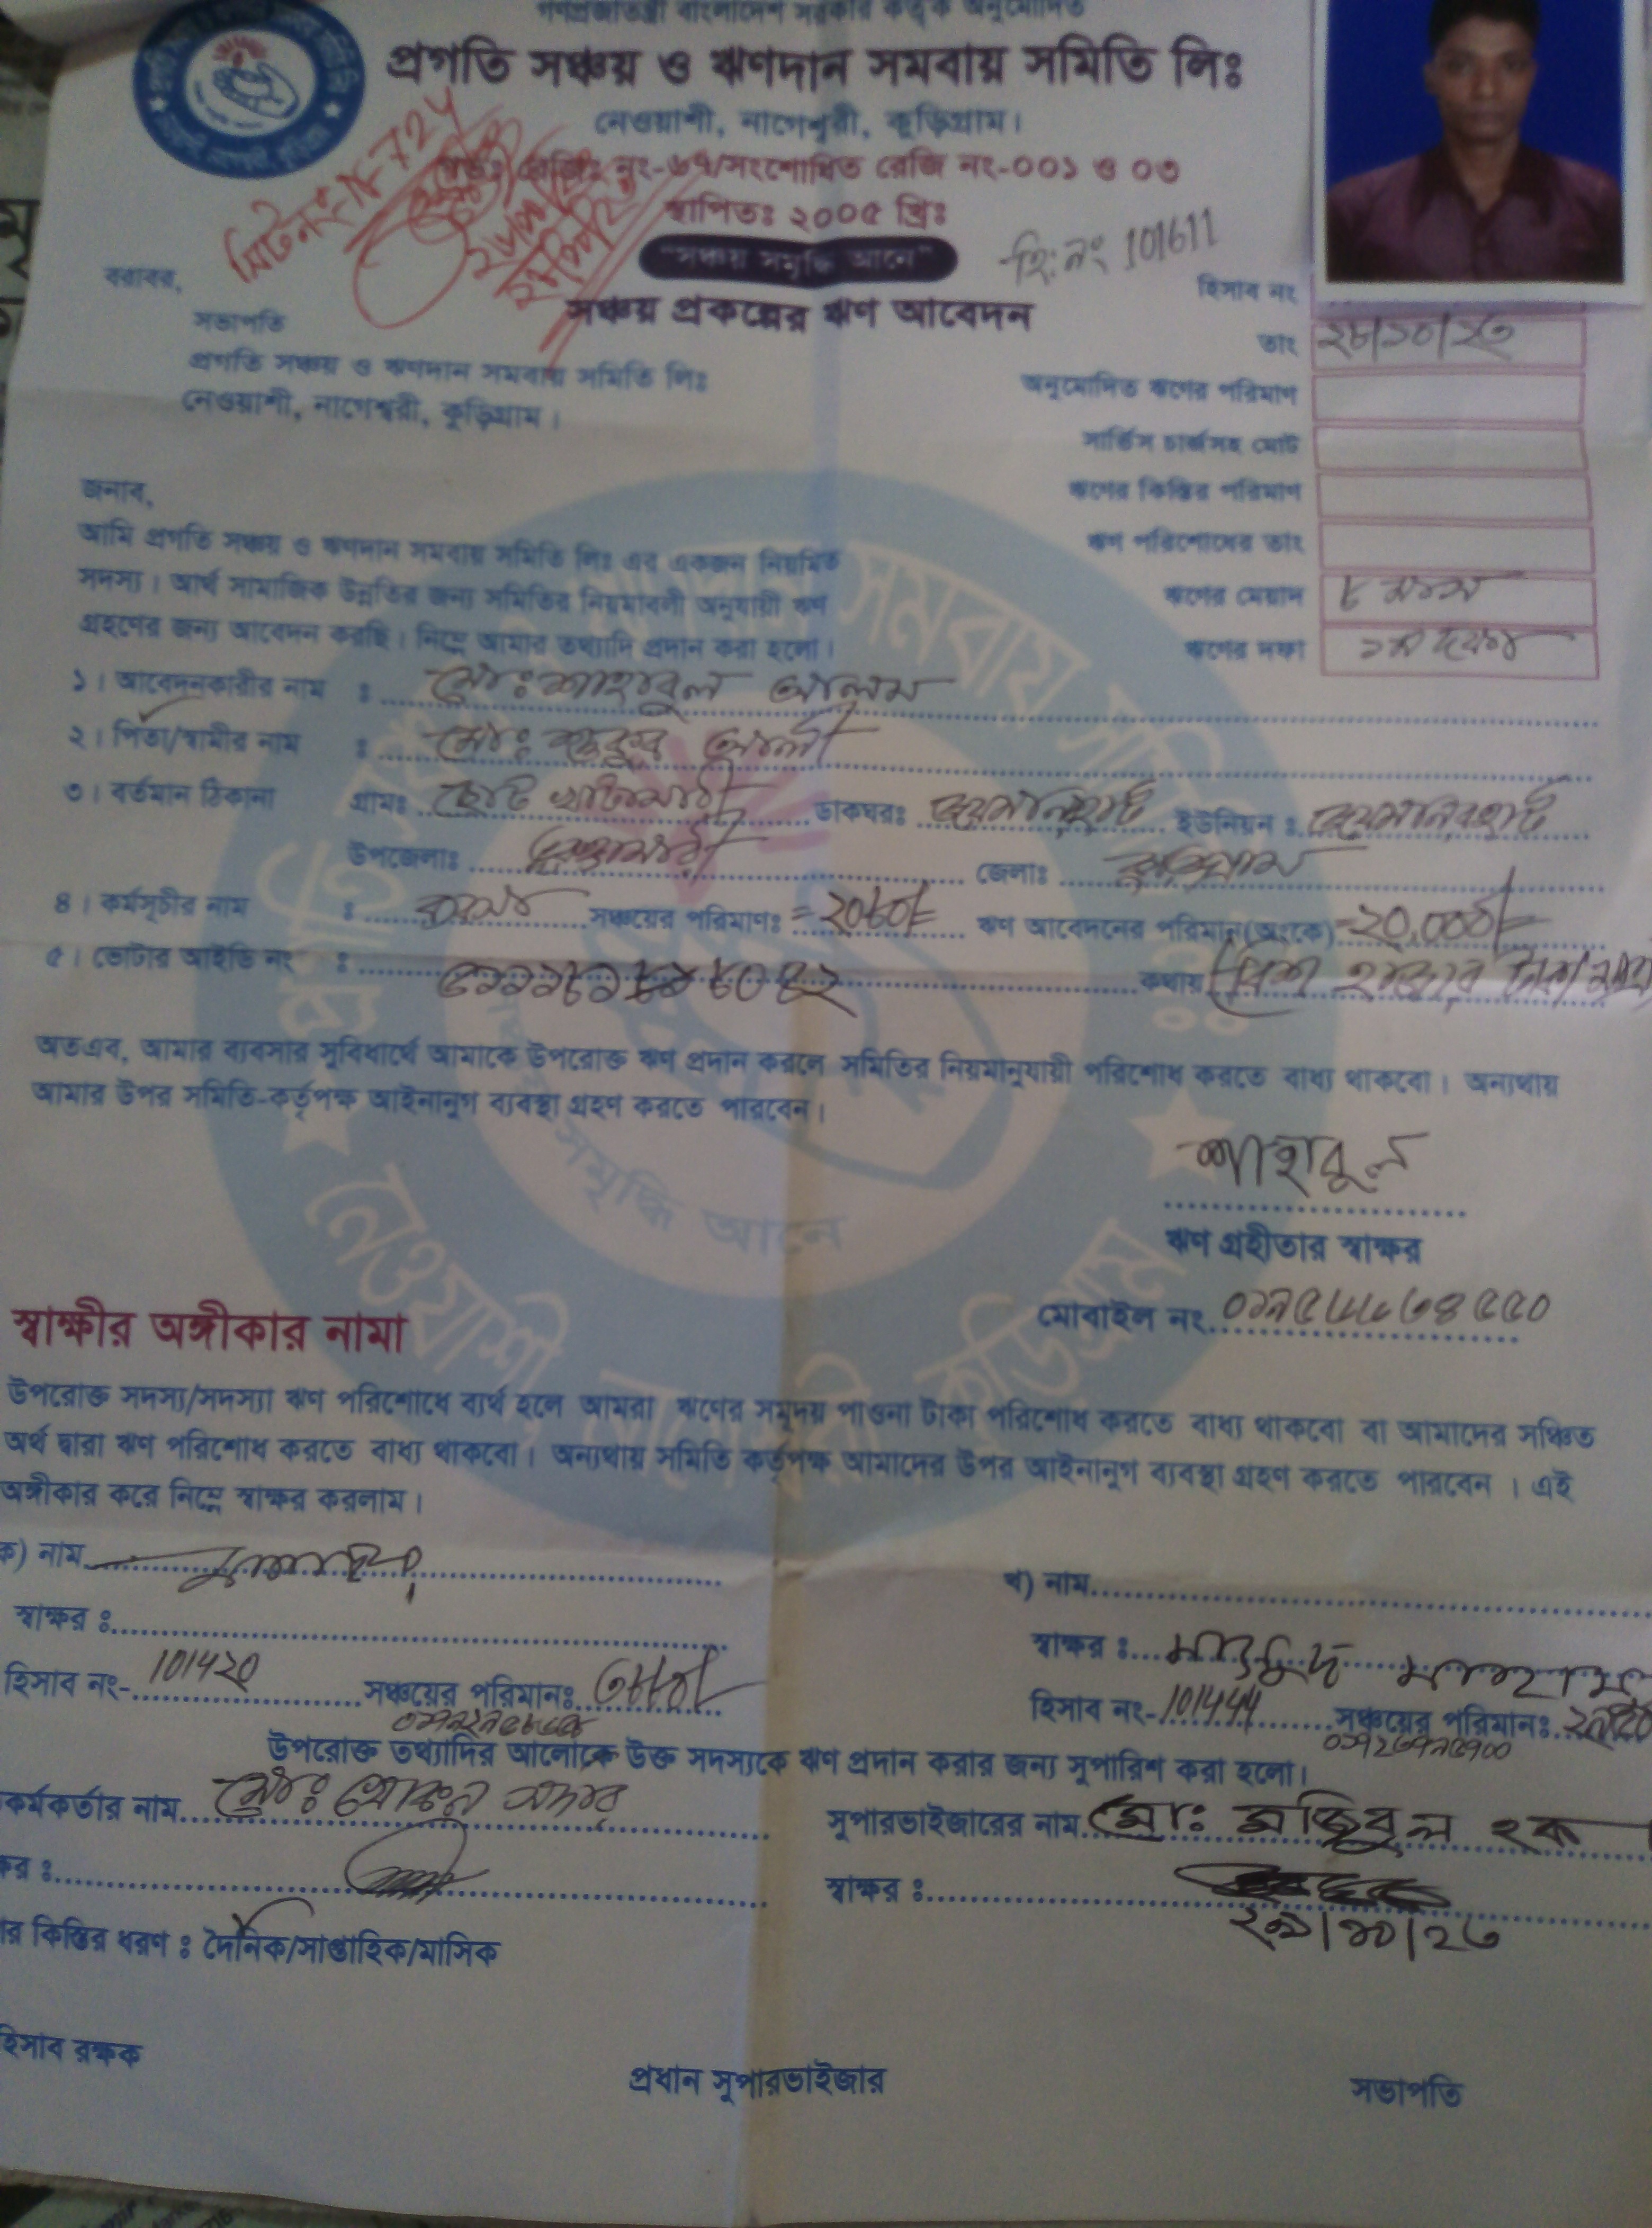 গণপ্রজাতন্ত্রী বাংলাদেশ সরকার কর্তৃক অনুমোদিত
প্রগতি সঞ্চয় ও ঋণদান সমবায় সমিতি লিঃ
নেওয়াশী, নাগেশ্বরী, কুড়িগ্রাম।
রেজিঃ নং-৬৭/সংশোধিত রেজি নং-০০১ ও ০৩
স্থাপিতঃ ২০০৫ খ্রিঃ
"সঞ্চয় সমৃদ্ধি আনে"
হি: নং 101611
সঞ্চয় প্রকল্পের ঋণ আবেদন
হিসাব নং
তাং ২৮/১০/২৩
অনুমোদিত ঋণের পরিমাণ
সার্ভিস চার্জসহ মোট
ঋণের কিস্তির পরিমাণ
ঋণ পরিশোধের তাং
ঋণের মেয়াদ ৮ মাস
ঋণের দফা ১ম দফা
বরাবর,
সভাপতি
প্রগতি সঞ্চয় ও ঋণদান সমবায় সমিতি লিঃ
নেওয়াশী, নাগেশ্বরী, কুড়িগ্রাম।
জনাব,
আমি প্রগতি সঞ্চয় ও ঋণদান সমবায় সমিতি লিঃ এর একজন নিয়মিত
সদস্য। আর্থ সামাজিক উন্নতির জন্য সমিতির নিয়মাবলী অনুযায়ী ঋণ
গ্রহণের জন্য আবেদন করছি। নিম্নে আমার তথ্যাদি প্রদান করা হলো।
১। আবেদনকারীর নাম : মোঃ শাহাবুল আলম
২। পিতা/স্বামীর নাম : মোঃ আলী
৩। বর্তমান ঠিকানা গ্রামঃ ছোট খাটামারী ডাকঘরঃ জয়মনিরহাট ইউনিয়ন : জয়মনিরহাট
উপজেলাঃ ভুরুঙ্গামারী জেলাঃ কুড়িগ্রাম
৪। কর্মসূচীর নাম : সঞ্চয়ের পরিমাণঃ =২০৮০/= ঋণ আবেদনের পরিমান(অংকে) =২০,০০০/=
৫। ভোটার আইডি নং : কথায় বিশ হাজার টাকা মাত্র
অতএব, আমার ব্যবসার সুবিধার্থে আমাকে উপরোক্ত ঋণ প্রদান করলে সমিতির নিয়মানুযায়ী পরিশোধ করতে বাধ্য থাকবো। অন্যথায়
আমার উপর সমিতি-কর্তৃপক্ষ আইনানুগ ব্যবস্থা গ্রহণ করতে পারবেন।
শাহাবুল
ঋণ গ্রহীতার স্বাক্ষর
মোবাইল নং
স্বাক্ষীর অঙ্গীকার নামা
উপরোক্ত সদস্য/সদস্যা ঋণ পরিশোধে ব্যর্থ হলে আমরা ঋণের সমূদয় পাওনা টাকা পরিশোধ করতে বাধ্য থাকবো বা আমাদের সঞ্চিত
অর্থ দ্বারা ঋণ পরিশোধ করতে বাধ্য থাকবো। অন্যথায় সমিতি কর্তৃপক্ষ আমাদের উপর আইনানুগ ব্যবস্থা গ্রহণ করতে পারবেন । এই
অঙ্গীকার করে নিম্নে স্বাক্ষর করলাম।
ক) নাম
খ) নাম
স্বাক্ষর :
স্বাক্ষর :
হিসাব নং- 101420 সঞ্চয়ের পরিমানঃ
হিসাব নং- 101444 সঞ্চয়ের পরিমানঃ
উপরোক্ত তথ্যাদির আলোকে উক্ত সদস্যকে ঋণ প্রদান করার জন্য সুপারিশ করা হলো।
কর্মকর্তার নাম মোঃ
সুপারভাইজারের নাম মোঃ মজিবুল হক
স্বাক্ষর :
২৯/১০/২৩
কিস্তির ধরণ : দৈনিক/সাপ্তাহিক/মাসিক
হিসাব রক্ষক
প্রধান সুপারভাইজার
সভাপতি